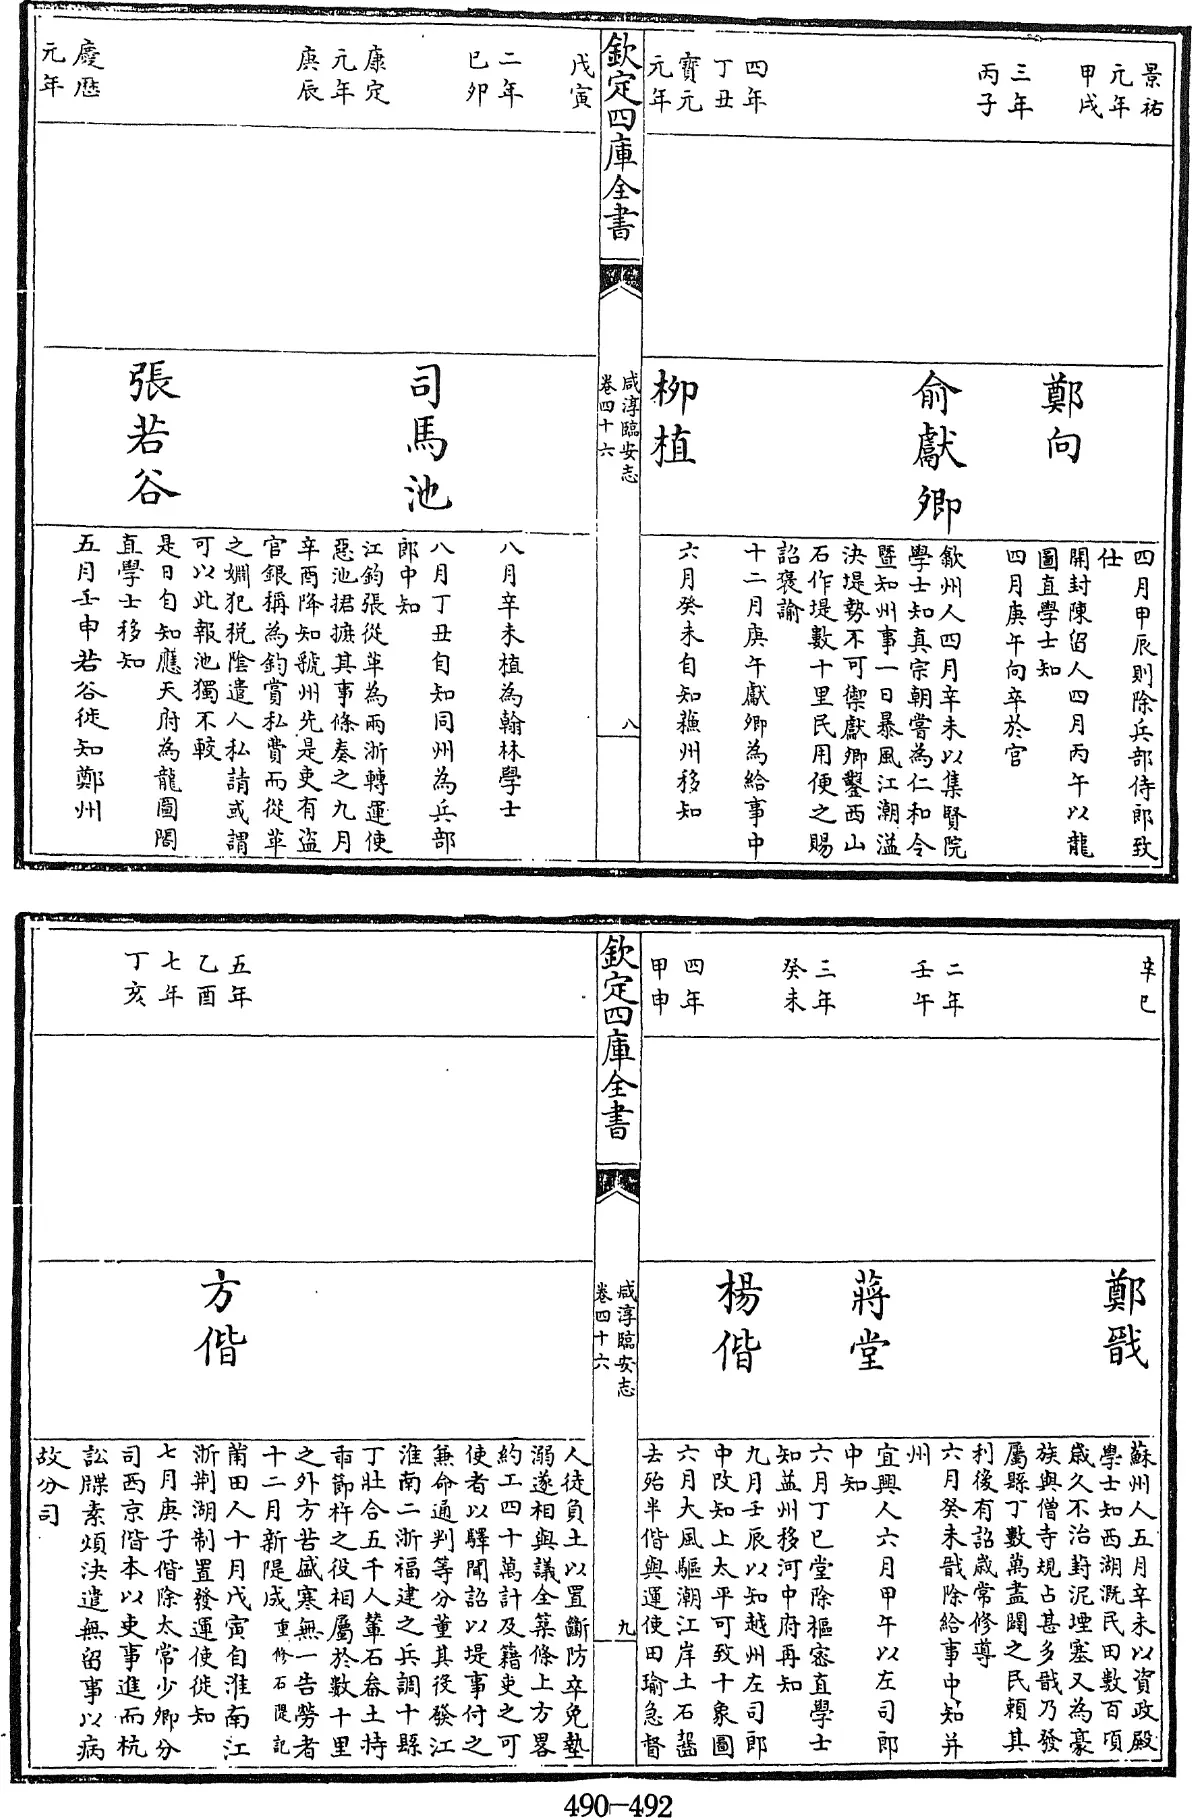 景祐
元年
甲戌
三年
丙子
四年
丁丑
寶元
元年
鄭向
俞獻卿
柳植
四月甲辰則除兵部侍郎致
仕
開封陳留人四月丙午以龍
圖直學士知
四月庚午向卒於官
歙州人四月辛未以集賢院
學士知真宗朝嘗為仁和令
暨知州事一日暴風江潮溢
決堤勢不可禦獻卿鑿西山
石作堤數十里民用便之賜
詔褒諭
十二月庚午獻卿為給事中
六月癸未自知蘓州移知
欽定四庫全書
咸淳臨安志
卷四十六
八
戊寅
二年
已卯
康定
元年
庚辰
慶歴
元年
司馬池
張若谷
八月辛未植為翰林學士
八月丁丑自知同州為兵部
郎中知
江鈞張從革為兩浙轉運使
惡池捃摭其事條奏之九月
辛酉降知虢州先是吏有盜
官銀稱為鈞賞私費而從革
之婣犯税陰遣人私請或謂
可以此報池獨不較
是日自知應天府為龍圖閣
直學士移知
五月壬申若谷徙知鄭州
辛巳
二年
壬午
三年
癸未
四年
甲申
鄭戩
蔣堂
楊偕
蘇州人五月辛未以資政殿
學士知西湖溉民田數百頃
嵗久不治葑泥堙塞又為豪
族與僧寺規占甚多戩乃發
屬縣丁數萬盡闢之民賴其
利後有詔嵗常修導
六月癸未戩除給事中知并
州
宜興人六月甲午以左司郎
中知
六月丁巳堂除樞密直學士
知益州移河中府再知
九月壬辰以知越州左司郎
中改知上太平可致十象圖
六月大風驅潮江岸土石齧
去殆半偕與運使田瑜急督
欽定四庫全書
咸淳臨安志
卷四十六
九
五年
乙酉
七年
丁亥
方偕
人徒負土以置斷防卒免墊
溺遂相與議全築條上方畧
約工四十萬計及籍吏之可
使者以驛聞詔以堤事付之
兼命通判等分董其役發江
淮南二浙福建之兵調十縣
丁壯合五千人輦石畚土持
畚節杵之役相屬於數十里
之外方苦盛寒無一告勞者
十二月新隄成重修石隄記
莆田人十月戊寅自淮南江
浙荆湖制置發運使徙知
七月庚子偕除太常少卿分
司西京偕本以吏事進而杭
訟牒素煩決遣無留事以病
故分司
490—492